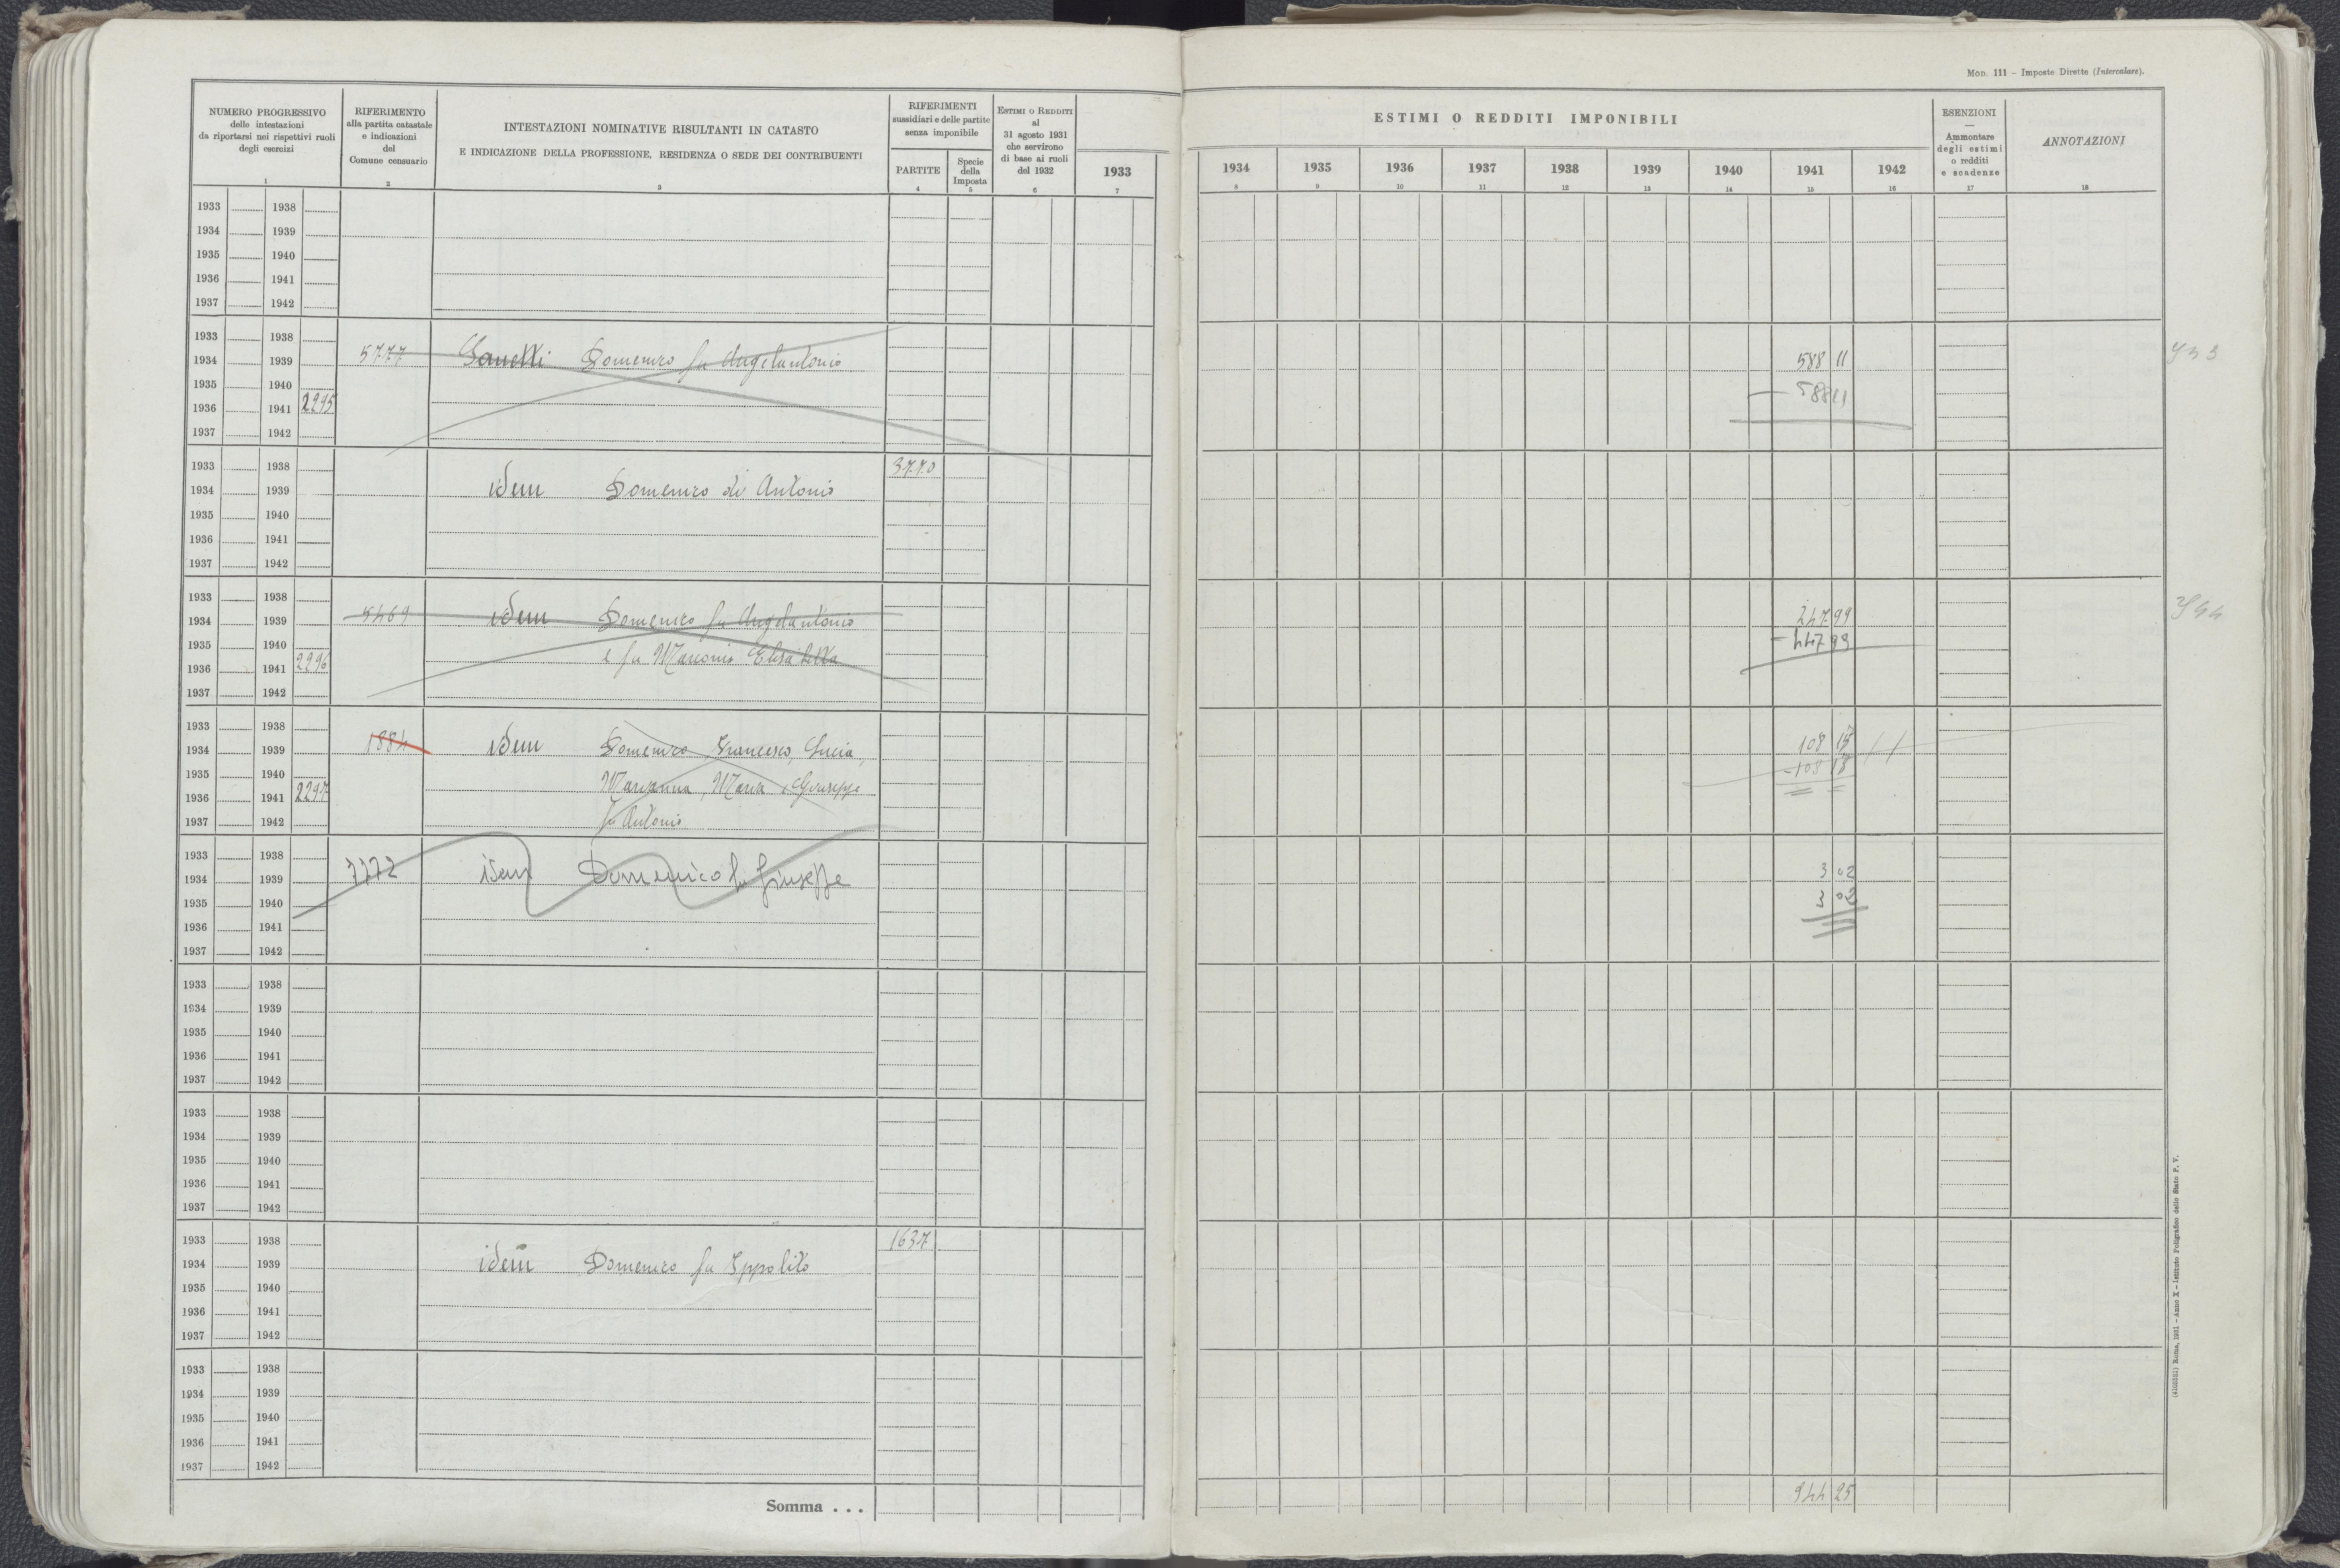 Mod. 111 – Imposte Dirette (Intercalare).
NUMERO PROGRESSIVO
delle intestazioni
da riportarsi nei rispettivi ruoli
degli esercizi
1
RIFERIMENTO
alla partita catastale
e indicazioni
del
Comune censuario
2
INTESTAZIONI NOMINATIVE RISULTANTI IN CATASTO
E INDICAZIONE DELLA PROFESSIONE, RESIDENZA O SEDE DEI CONTRIBUENTI
3
RIFERIMENTI
sussidiari e delle partite
senza imponibile
PARTITE
4
Specie
della
Imposta
5
Estimi o Redditi
al
31 agosto 1931
che servirono
di base ai ruoli
del 1932
6
1933
7
ESTIMI O REDDITI IMPONIBILI
1934 1935 1936 1937 1938 1939 1940 1941 1942
8 9 10 11 12 13 14 15 16
ESENZIONI
—
Ammontare
degli estimi
o redditi
e scadenze
17
ANNOTAZIONI
18
1933 1938
1934 1939
1935 1940
1936 1941
1937 1942
1933 1938
1934 1939 5777 Domenico fu Angelantonio 588 11
1935 1940 – 588 11
1936 1941 2295
1937 1942
1933 1938 3770
1934 1939 idem Domenico di Antonio
1935 1940
1936 1941
1937 1942
1933 1938
1934 1939 5469 idem Domenico fu Angelantonio 247 99
1935 1940 e fu Marconio Elisabetta
1936 1941 2296
1937 1942
1933 1938
1934 1939 1884 idem Domenico Francesco, Lucia, 108 15
1935 1940 Marianna, Maria e Giuseppe
1936 1941 2297
1937 1942 fu Antonio
1933 1938
1934 1939 7172 idem Domenico fu Giuseppe 3 02
1935 1940 3 02
1936 1941
1937 1942
1933 1938
1934 1939
1935 1940
1936 1941
1937 1942
1933 1938
1934 1939
1935 1940
1936 1941
1937 1942
1933 1938 1637
1934 1939 idem Domenico fu Ippolito
1935 1940
1936 1941
1937 1942
1933 1938
1934 1939
1935 1940
1936 1941
1937 1942
Somma . . . 944 25